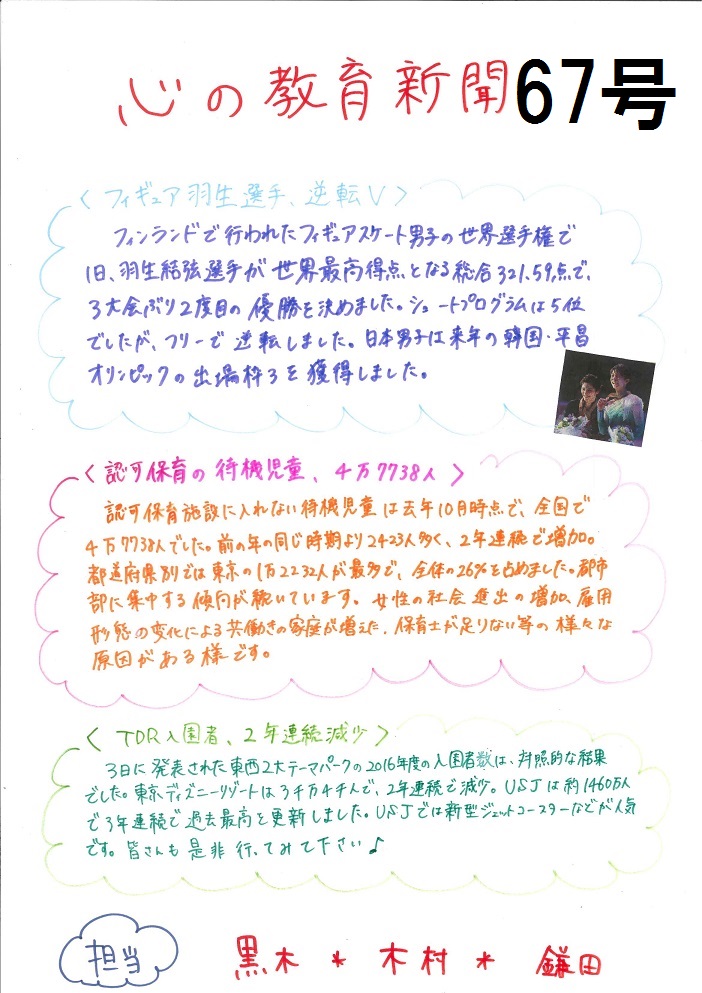 心の教育新聞67号
〈フィギュア羽生選手、逆転V〉
フィンランドで行われたフィギュアスケート男子の世界選手権で
1日、羽生結弦選手が世界最高得点となる総合321.59点で、
3大会ぶり2度目の優勝を決めました。ショートプログラムは5位
でしたが、フリーで逆転しました。日本男子は来年の韓国・平昌
オリンピックの出場枠3を獲得しました。
〈認可保育の待機児童、4万7738人〉
認可保育施設に入れない待機児童は去年10月時点で、全国で
4万7738人でした。前の年の同じ時期より2423人多く、2年連続で増加。
都道府県別では東京の1万2232人が最多で、全体の26%を占めました。都市
部に集中する傾向が続いています。女性の社会進出の増加、雇用
形態の変化による共働きの家庭が増えた、保育士が足りない等の様々な
原因がある様です。
〈TDR入園者、2年連続減少〉
3日に発表された東西2大テーマパークの2016年度の入園者数は、対照的な結果
でした。東京ディズニーリゾートは3千万4千人で、2年連続で減少。USJは約1460万人
で3年連続で過去最高を更新しました。USJでは新型ジェットコースターなどが人気
です。皆さんも是非行ってみて下さい♪
担当
黒木 * 木村 * 鎌田